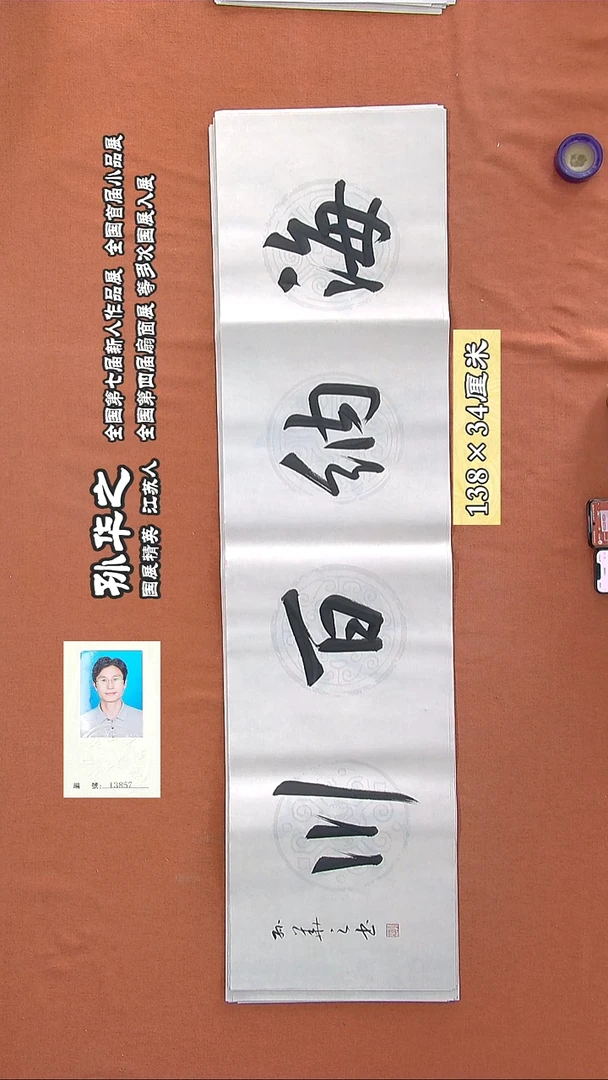 孙华之
国展精英 江苏人
全国第七届新人作品展 全国首届小品展
全国第四届扇面展 等多次国展入展
編 號：13857
海纳百川
孙華之书
138×34厘米